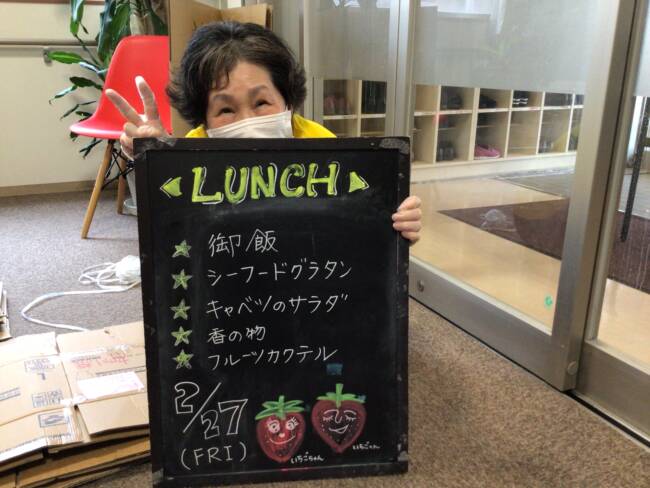 LUNCH
御飯
シーフードグラタン
キャベツのサラダ
香の物
フルーツカクテル
2/27
(FRI)
いちごちゃん
いちごくん